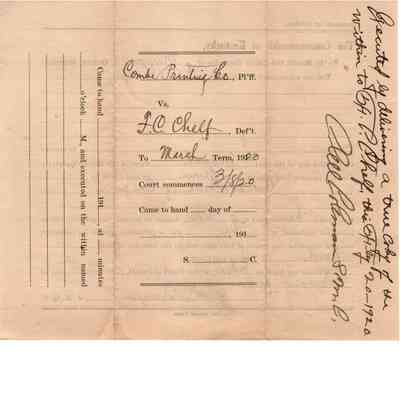 Combe Printing Co., Pl'ff.
Vs.
F. C. Chelf, Def't.
To March Term, 1920
Court commences 3/8/20
Came to hand ___ day of ___
___, 191__
S. ___ C.
Came to hand ___ 191__ at ___ minutes
o'clock ___ M., and executed on the within named
Executed by delivering a true copy of the
within to F. C. Chelf this Feby 20-1920
Coleman S.M.C.